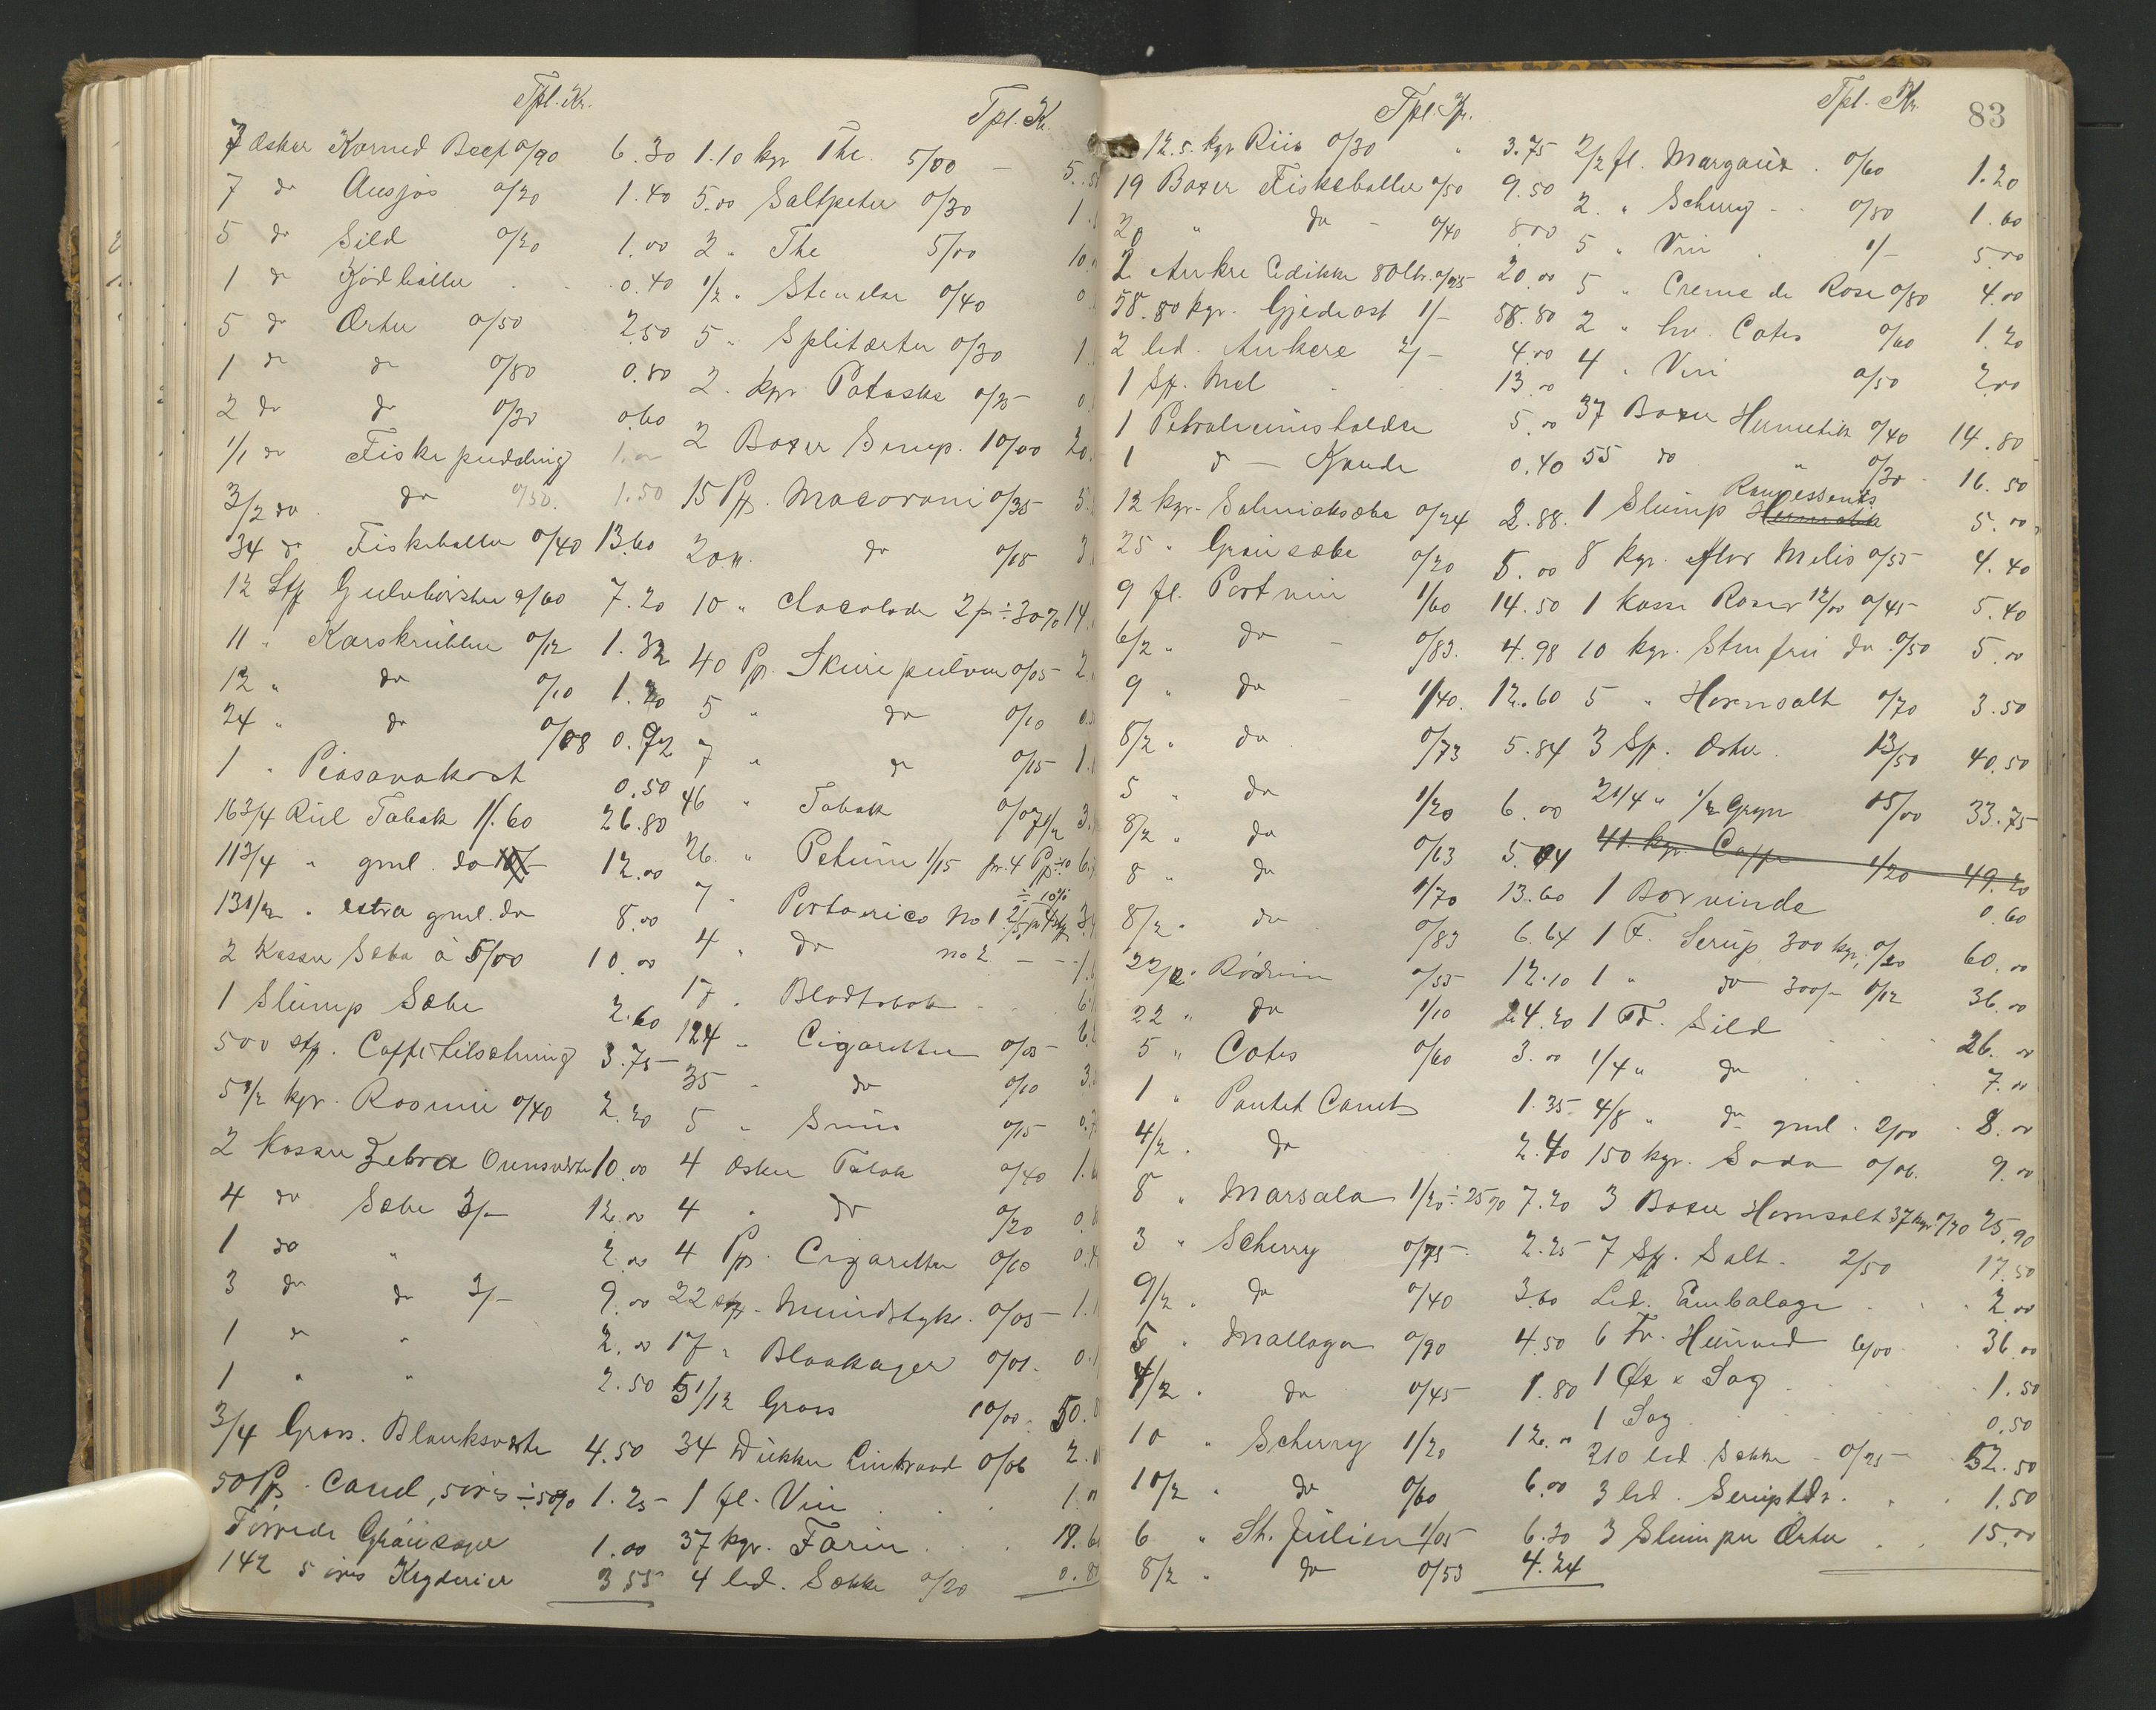 Tpl. Kr.
7 Æsker Korned Beef 0/90 6.30
7 do Ansjos 0/20 1.40
5 do Sild 0/20 1.00
1 do Kjødboller 0.40
5 do Ærter 0/50 2.50
1 do do 0/80 0.80
2 do do 0/30 0.60
1/1 do Fiskepudding 1.00
3/2 do do 0/50. 1.50
34 do Fiskeboller 0/40 13.60
12 Stk Gulvbørster 0/60 7.20
11 " Karskrubber 0/12 1.32
12 " do 0/10 1.20
24 " do 0/08 0.72
1 " Piasavakost 0.50
16 3/4 Rul Tobak 1/.60 26.80
11 3/4 " gml. do 12.00
13 1/2 " extra gml. do 8.00
2 Kasser Sæbe à 5/00 10.00
1 Slump Sæbe 2.60
500 stk. Caffetilsetning 3.75
5 1/2 kgr. Rosiner 0/40 2.20
2 Kasser Zebra Ovnsværte 10.00
4 do Sæbe 3/- 12.00
1 do " 2.00
3 do do 3/- 9.00
1 do " 2.00
1 " " 2.50
3/4 Gross. Blanksværte 4.50
50 Pk. Canel, 5 øres ÷ 50% 1.25
Tørrede Grønsager 1.00
142 5 øres Kryderier 3.55
Tpl. K.
1.10 kgr The. 5/00 - 5.5
5.00 Saltpeter 0/30 1.
2 " The 5/00 10.
1/2 " Stenelar 0/40 0
5 " Splitærter 0/30 1.
2. kgr Potaske 0/25 0.
2 Boxer Sirup. 10/00 20.
15 Pk. Macaroni 0/35 5.
20 " do 0/18 3
10 " Chocolade 2/- ÷ 30% 14.
40 Pk. Skurepulver 0/05 2.
5 " do 0/10 0.
7 " do 0/15 1.
46 " Tobak 0/07 1/2 3.
26. " Petum 1/15 pr. 4 Pk ÷ 10 6.
÷ 10%
7 " Portorico No 1 3.
4 " do no 2 - - 1.
17 " Bladtobak 6.
124 " Cigaretter 0/05 6.
35 " do 0/10 3.
5 " Snus 0/15 0.7
4 Æsker Tobak 0/40 1.6
4 " do 0/20 0.8
4 Pk. Cigaretter 0/10 0.4
22 stk. Mundstyke. 0/05 1.1
17 " Blaakager 0/01. 0.1
5 1/12 Gross 10/00. 50.
34 Dukker Lintraad 0/06 2.0
1 fl. Vin 1.0
37 kgr. Farin 18.6
4 led. Sække 0/20 0.8
83
Tpl. Kr.
12.5. kgr Riis 0/30 " 3.75
19 Boxer Fiskeboller 0/50 9.50
20 " do - 0/40 8.00
2 Ankre Edikke 80 ltr. 0/25 20.00
58.80 kgr. Gjedeost 1/- 58.80
2 led. Ankere 2/- 4.00
1 Sk. Mel 13.00
1 Petroleumsholder 5.00
1 do - Kande 0.40
12 kgr. Salmiaksæbe 0/24 2.88.
25 " Grønsæbe 0/20 5.00
9 fl. Portvin 1/60 14.50
6/2 " do - 0/83. 4.98
9 " do - 1/40. 12.60
8/2 " do 0/73 5.84
5 " do 1/20 6.00
8/2 " do 0/63 5.04
8 " do 1/70 13.60
8/2 " do 0/83 6.64
22/2 " Rødvin 0/55 12.10
22 " do 1/10 24.20
5 " Cotes 0/60 3.00
1 " Pontet Canet 1.35
4/2 " do 2.40
8 " Marsala 1/20 ÷ 25% 7.20
3 " Scherry 0/75 2.25
9/2 " do 0/40 3.60
5 " Mallaga 0/90 4.50
4/2 " do 0/45 1.80
10 " Scherry 1/20 12.00
10/2 " do 0/60 6.00
6 " St. Julien 1/05 6.30
8/2 " do 0/53 4.24
Tpl. Kr.
2/2 fl. Margaux 0/60 1.20
2 " Scherry 0/80 1.60
5 " Vin 1/- 5.00
5 " Creme de Rose 0/80 4.00
2 " hv. Cotes 0/60 1.20
4 " Vin 0/50 2.00
37 Boxer Hermetik 0/40 14.80
55 do " 0/30 16.50
Rangessents
1 Slump Hermetik 5.00
8 kgr. stør Melis 0/55 4.40
1 Kasse Roser 12/00 0/45 5.40
10 kgr. Stenfrie do 0/50 5.00
5 " Hornsalt 0/70 3.50
3 Sk. Ærter 13/50 40.50
2 1/4 " 1/2 Gryn 15/00 33.75
41. kgr. Caffe 1/20 49.20
1 Borvinde 0.60
1 F. Serup 300 kgr. 0/20 60.00
1 " do 300/- 0/12 36.00
1 Td. Sild 26.00
1/4 " do 7.00
4/8 " do gml. 2/00 8.00
150 kgr. Soda 0/06. 9.00
3 Boxer Hornsalt 37 kgr 0/70 25.90
7 Sk. Salt. 2/50 17.50
Led. Embalage 2.00
6 Fv. Hunved 6/00 36.00
1 Øx & Sag 1.50
1 Sag 0.50
210 led. Sekke 0/25 52.50
3 led. Seruptdr. 1.50
3 Slumper Ærter 15.00